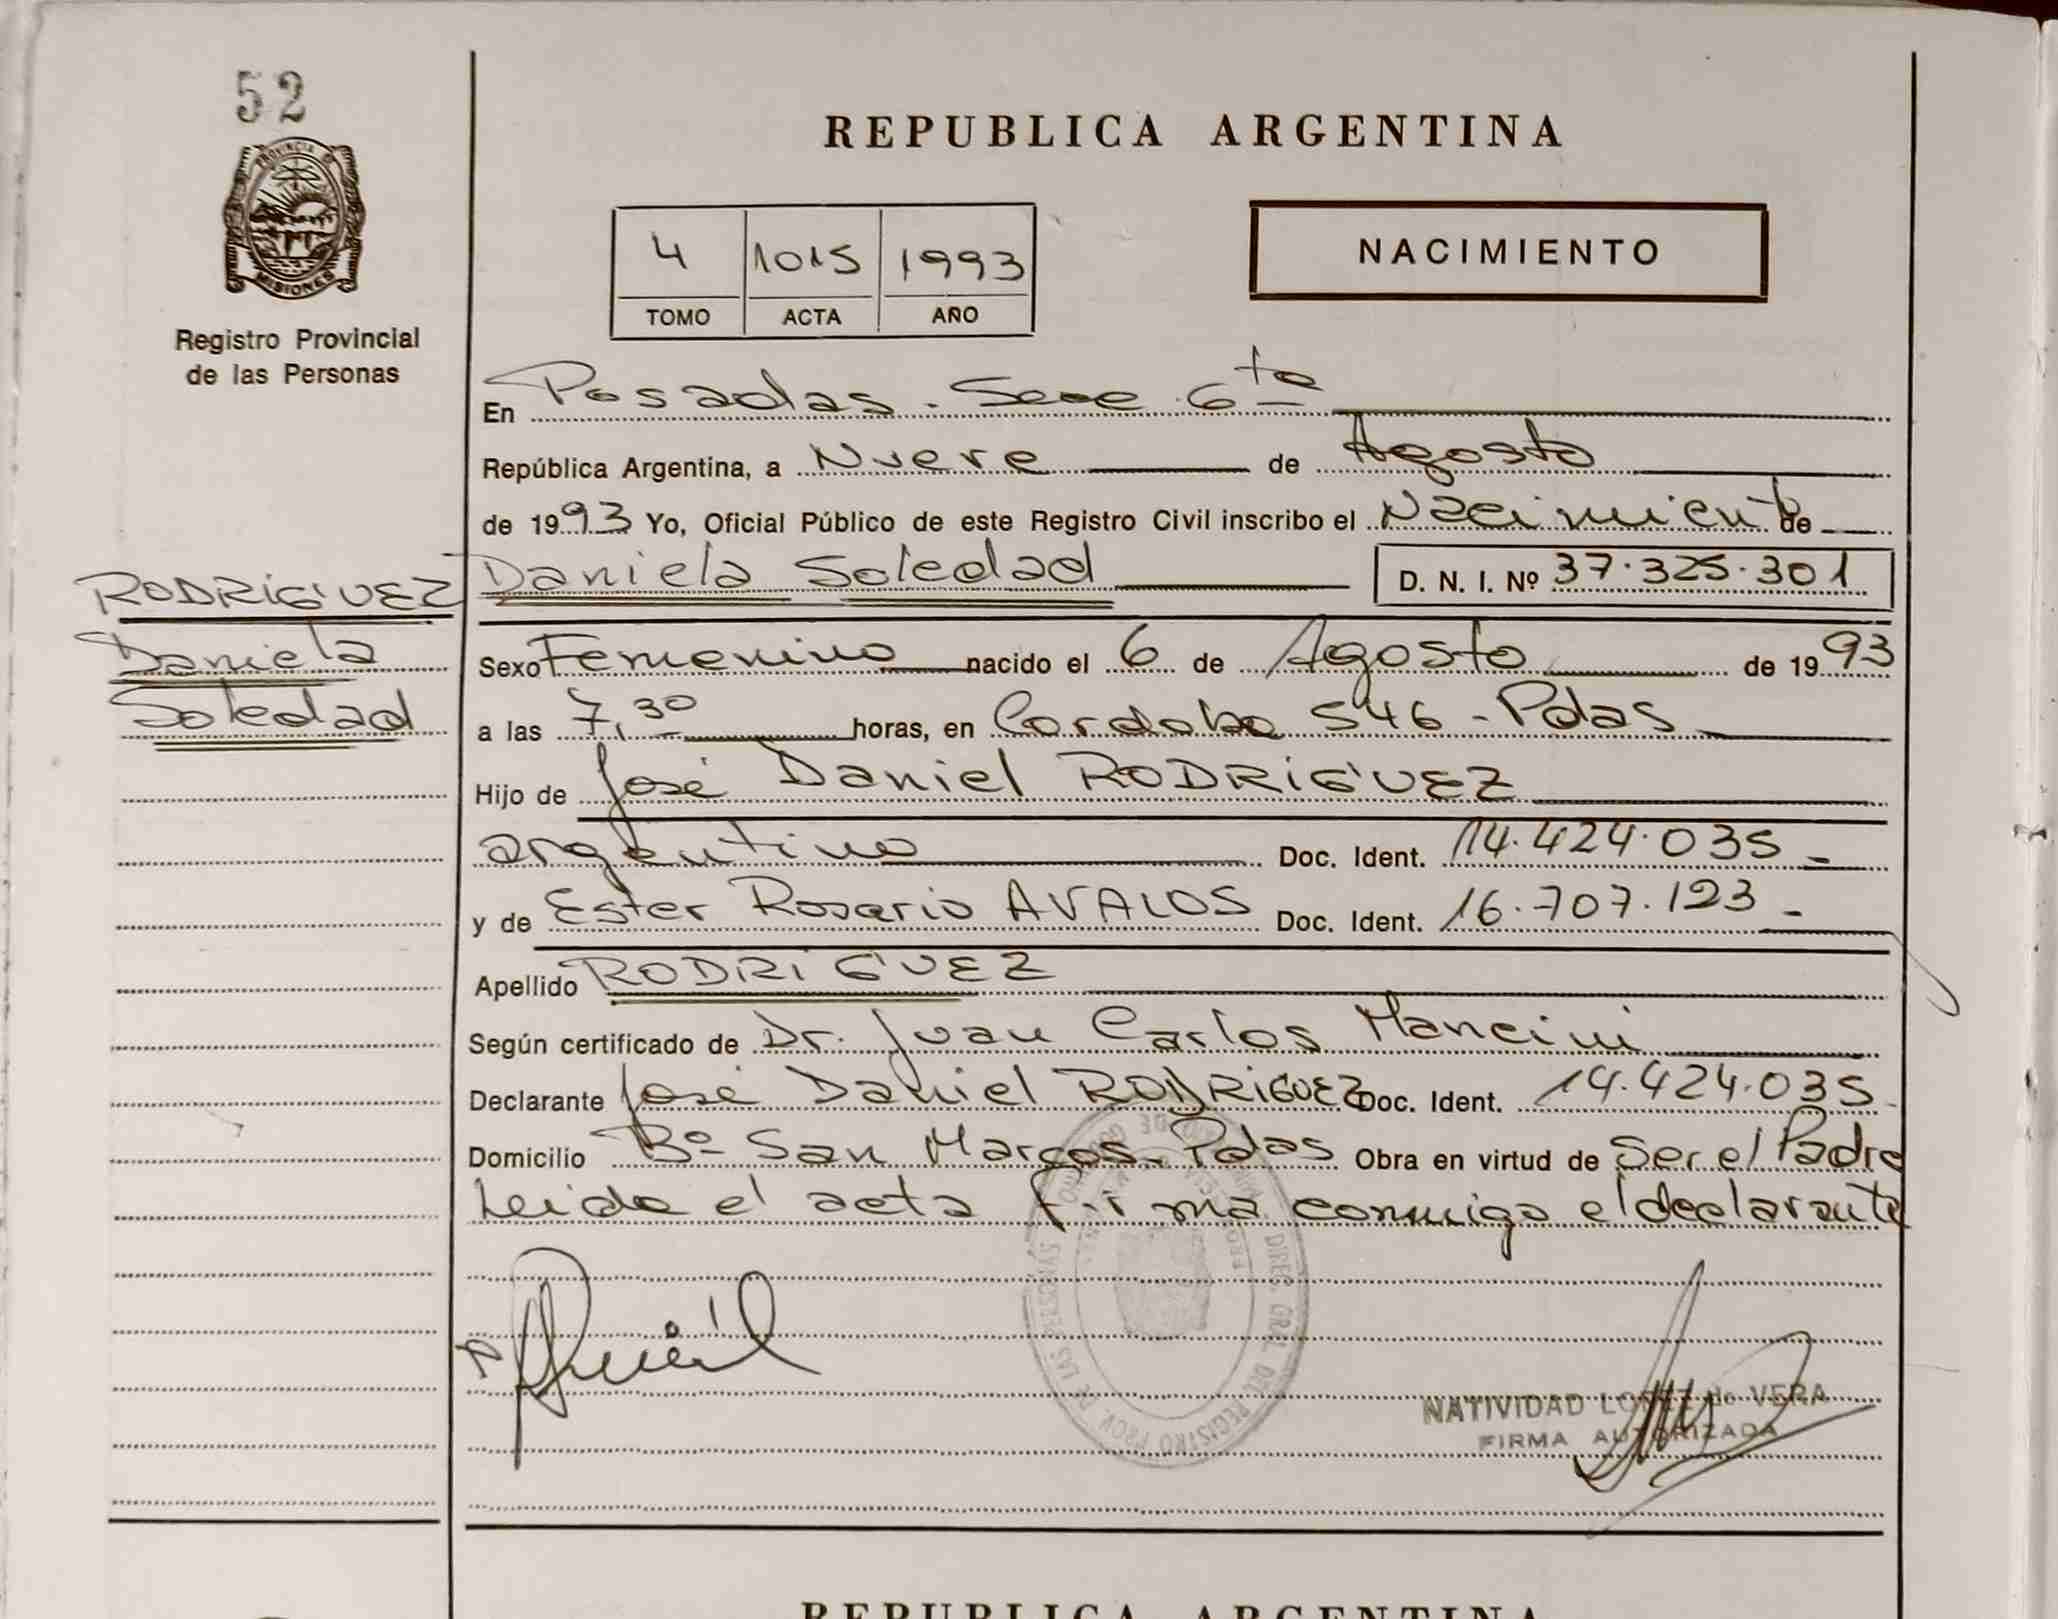 52
PROVINCIA DE
MISIONES
Registro Provincial
de las Personas
RODRIGUEZ
Daniela
Soledad
REPUBLICA ARGENTINA
4 1015 1993
TOMO ACTA AÑO
NACIMIENTO
En Posadas. Secc 6ta
República Argentina, a Nueve de Agosto
de 1993 Yo, Oficial Público de este Registro Civil inscribo el Nacimiento de
Daniela Soledad D. N. I. Nº 37.325.301
Sexo Femenino nacido el 6 de Agosto de 1993
a las 7,30 horas, en Cordoba 546 - Pdas
Hijo de José Daniel RODRIGUEZ
argentino Doc. Ident. 14.424.035
y de Ester Rosario AVALOS Doc. Ident. 16.707.123
Apellido RODRIGUEZ
Según certificado de Dr. Juan Carlos Mancini
Declarante José Daniel RODRIGUEZ Doc. Ident. 14.424.035
Domicilio Bº San Marcos - Pdas Obra en virtud de Ser el Padre
Leida el acta firma conmigo el declarante
DIREC. GRAL. DEL REGISTRO PROV. DE LAS PERSONAS
NATIVIDAD LOPEZ de VERA
FIRMA AUTORIZADA
REPUBLICA ARGENTINA